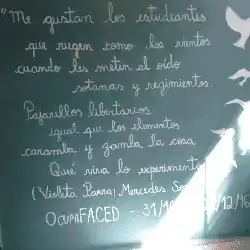 "Me gustan los estudiantes
que rugen como los vientos
cuando les meten al oído
sotanas y regimientos.
Pajarillos libertarios
igual que los elementos
caramba y zamba la cosa
Qué viva lo experimento
(Violeta Parra, Mercedes
OcupaFACED - 31/10 12/16